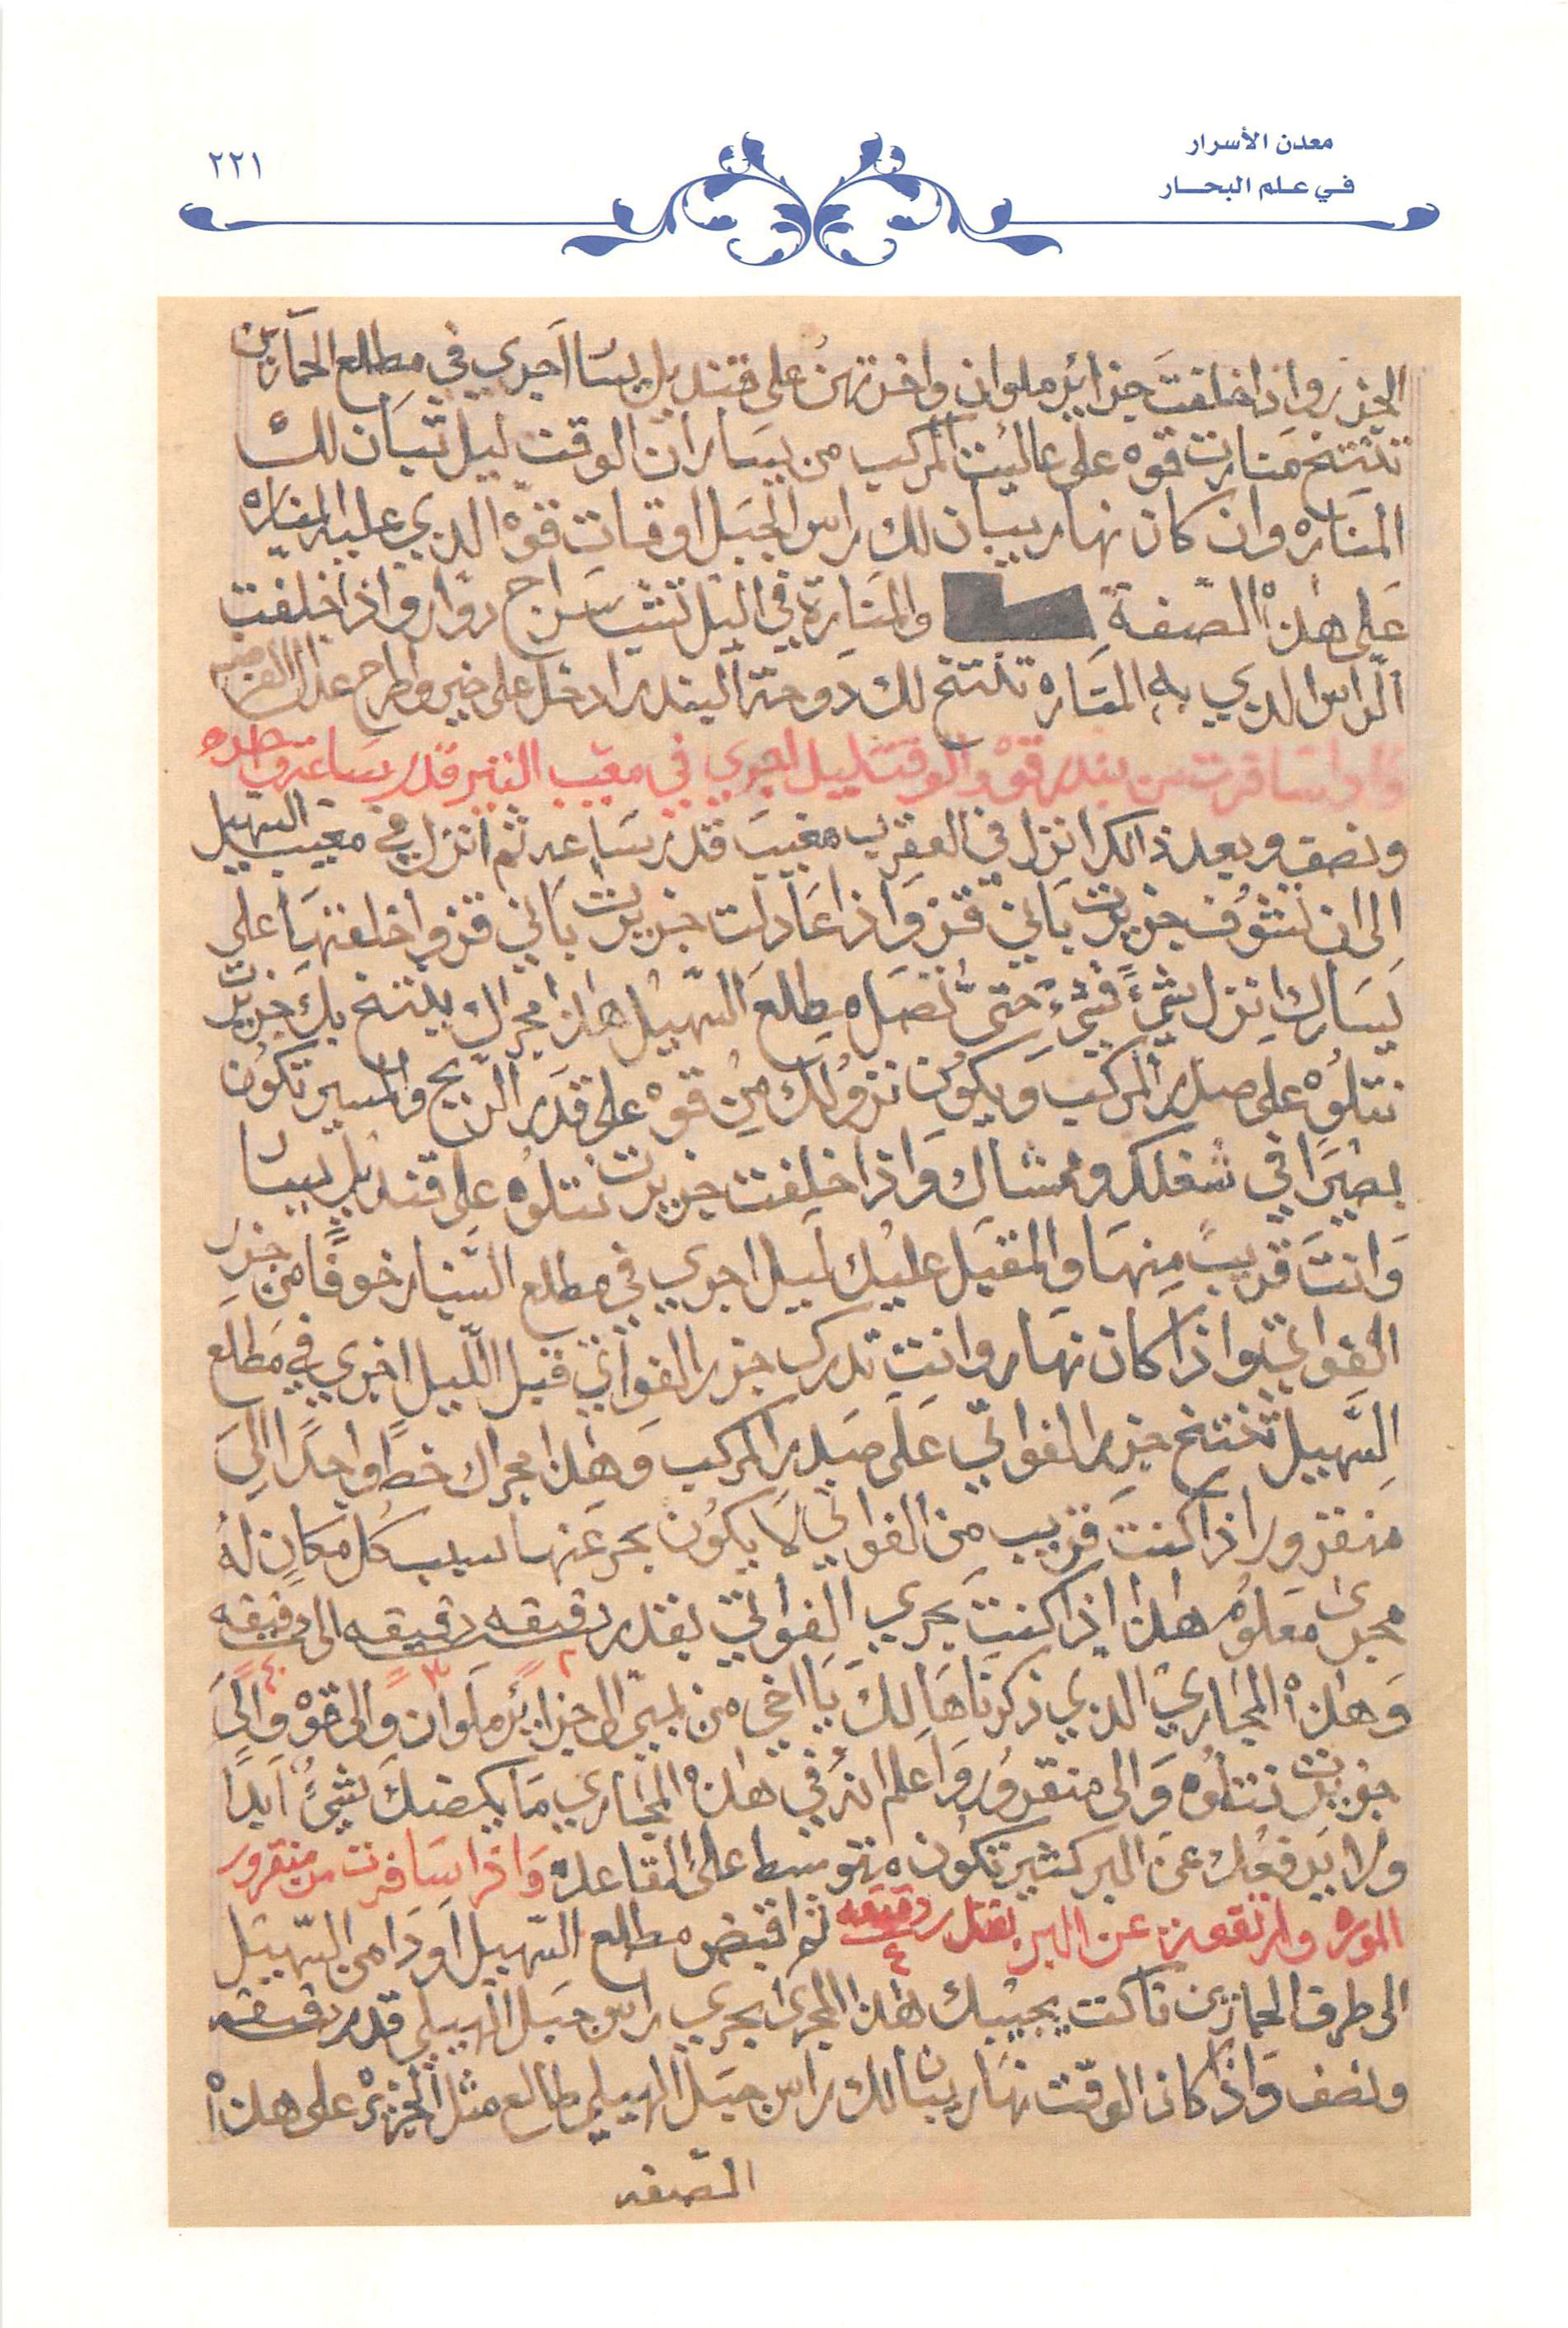 معدن الأسرار
في علم البحار
٢٢١
الجزر واذا خلفت جزائر ملوان واخرتهن على قنديل يسا اجري في مطلع الحمارين
تنتخ منارت قوه على عاليت المركب من يسار ان الوقت ليل تبان لك
المناره وان كان نهار يبان لك راس الجبل اوقات قوه الدي عليه المناره
على هذه الصفة والمنارة في اليل تشب سراج دوار واذا خلفت
الراس الدي به المناره تنتخ لك دوحة البندر ادخل على خير واطرح عدال الفرضه
واذا سافرت من بندر قوه والوقت ليل اجري في مغيب النير قدر ساعه
ونصف وبعد ذالك انزل في العقرب مغيب قدر ساعه ثم انزل في مغيب السهيل
الى ان تشوف جزيرت باني قز واذا عادلت جزيرت باني قز واخلفتها على
يسارك انزل شيء فشيء حتى تصل مطلع السهيل هذا مجراك ينتخ بك جزيرت
نتلوه على صدر المركب ويكون نزولك من قوه على قدر الريح والسير تكون
بصيرا في شغلك وممشاك واذا خلفت جزيرت نتلوه على قنديل يسا
وانت قريب منها والمقبل عليك ليل اجري في مطلع السنبار خوفا من جزر
الفواتي واذا كان نهار وانت تدرك جزر الفواتي قبل الليل اجري في مطلع
السهيل تنتخ جزر الفواتي على صدر المركب وهذا مجراك خط واحدا الى
منقرور اذا كنت قريب من الفواتي لا يكون بحر عنها لسبب كل مكان له
مجرى معلوم هذا اذا كنت بحري الفواتي بقدر دقيقه دقيقه الى دقيقه
٢ ٣ ٤
وهذه المجاري الدي ذكرناها لك يا اخي من بمبي الى جزاير ملوان والى قوه والى
جزيرت نتلوه والى منقرور واعلم انه في هذه المجاري ما يكيضك شيء ابدا
ولا يدفعك عن البر كثير تكون متوسط على القاعده واذا سافرت من منقرور
الموره وارتفعت عن البر بقدر دقيقه ثم اقبض مطلع السهيل او دامن السهيل
٤
الى طرف الحمارين فاكت يجيبك هذا المجرى بحري راس جبل الهيلي قدر دقيقه
ونصف واذا كان الوقت نهار يبان لك راس جبل الهيلي طالع مثل الجزيره على هذه
الصفه